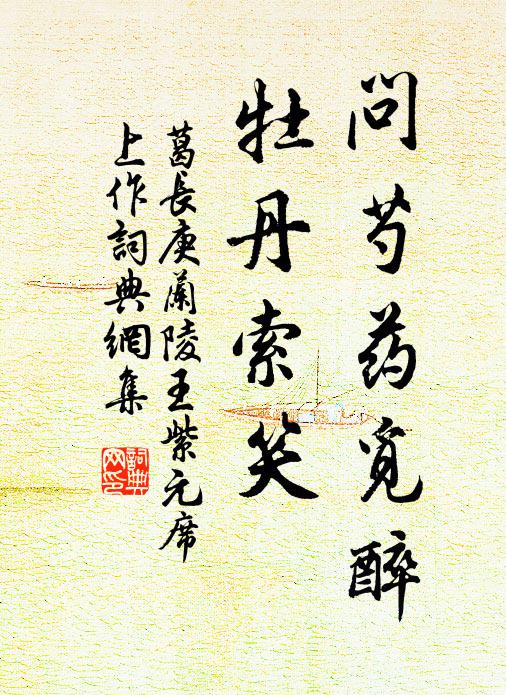 问芍药觅醉
牡丹索笑
葛長庚蘭陵王紫元席
上作詞典網集
詞典
网印